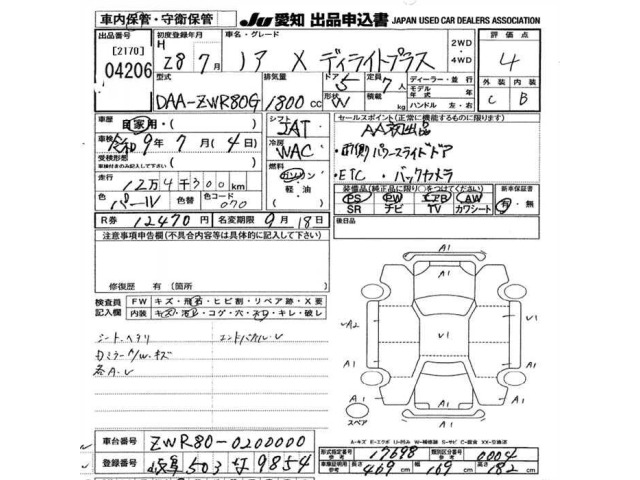 車内保管・守衛保管
JU 愛知 出品申込書 JAPAN USED CAR DEALERS ASSOCIATION
出品番号
[2170]
04206
初度登録年月
H
28 7月
車名・グレード
ノア X ディライトプラス
2WD
・
4WD
評価点
4
外装 内装
C B
型式
DAA-ZWR80G
排気量
1800 cc
ドア 5
形状 W
定員 7人
積載 kg
ディーラー・並行
モデル年式 年
ハンドル 左・右
車歴
自家用・( )
車検 令和9年7月(4日)
受検形態
車検付きのみ記入して下さい
走行
12万4千300km
色 パール
色替
色コード 070
シフト
IAT
冷房
WAC
燃料
ガソリン
軽油
( )
セールスポイント(正常に機能するものに限ります)
AA初出品
・両側パワースライドドア
・ETC ・バックカメラ
装備品(純正品に限り○をつけてください)
PS PW エアB AW
SR ナビ TV カワシート
新車保証書
有・無
R券 12470円 名変期限 9月18日
後日品
注意事項申告欄(不具合内容等は具体的に記入して下さい)
修復歴 有 (箇所 )
検査員
記入欄
FW キズ・飛石・ヒビ割・リペア跡・X要
内装 キズ・汚レ・コゲ・穴・スレ・キレ・破レ
シートヘタリ
各A・U
A1
A1
A1
A1
A2
U1
V1
A1
A1
A1
A1
スペア
A-キズ E-エクボ U-凹み W-補修跡 S-サビ C-腐食 XX-交換済
車台番号 ZWR80-0200000
登録番号 岐阜 503 せ 9854
形式指定番号 17698
類別区分番号 0004
長さ 469cm 幅 169cm 高さ 182cm